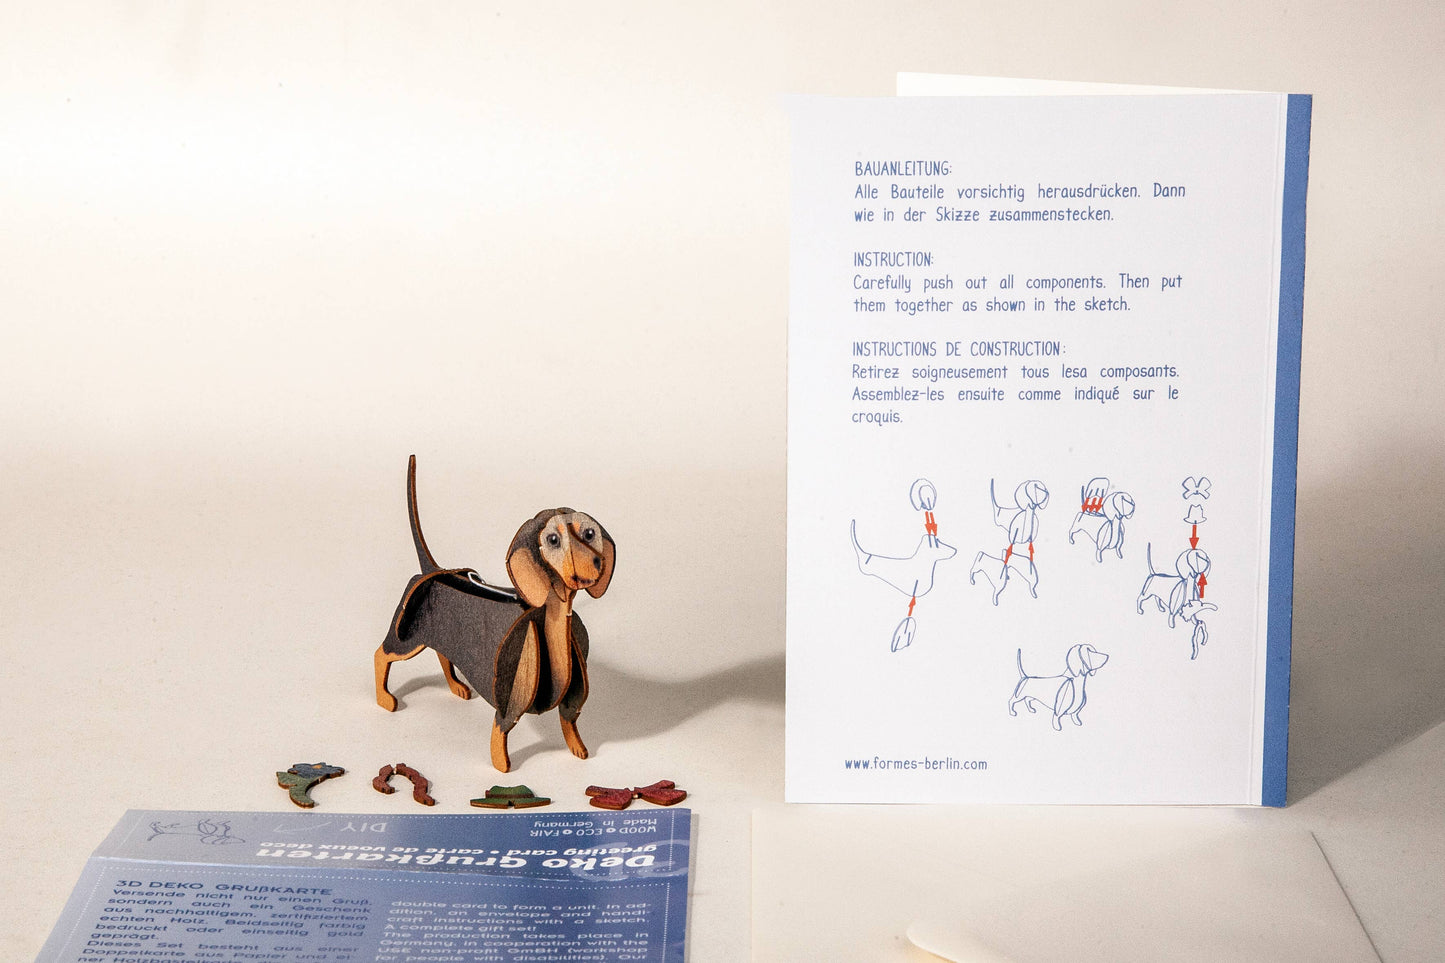 BAUANLEITUNG:
Alle Bauteile vorsichtig herausdrücken. Dann
wie in der Skizze zusammenstecken.
INSTRUCTION:
Carefully push out all components. Then put
them together as shown in the sketch.
INSTRUCTIONS DE CONSTRUCTION:
Retirez soigneusement tous lesa composants.
Assemblez-les ensuite comme indiqué sur le
croquis.
www.formes-berlin.com
DIY
WOOD ECO FAIR
Made in Germany
Deko Grußkarten
greeting card • carte de voeux deco
3D DEKO GRUßKARTE
Versende nicht nur einen Gruß,
sondern auch ein Geschenk
aus nachhaltigem, zertifiziertem
echten Holz. Beidseitig farbig
bedruckt oder einseitig gold
geprägt.
Dieses Set besteht aus einer
Doppelkarte aus Papier und ei-
ner Holzbastelkarte
double card to form a unit. In ad-
dition, an envelope and handi-
craft instructions with a sketch.
A complete gift set!
The production takes place in
Germany, in cooperation with the
USE non-profit GmBH (workshop
for people with disabilities). Our